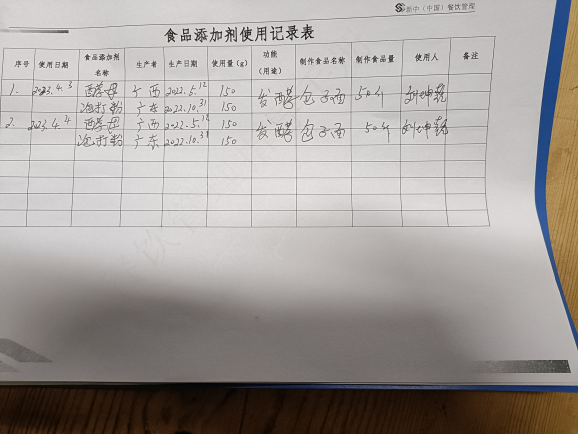 新中（中国）餐饮管理
食品添加剂使用记录表
序号 使用日期 食品添加剂名称 生产者 生产日期 使用量（g） 功能（用途） 制作食品名称 制作食品量 使用人 备注
1. 2023.4.3 酵母 广西 2022.5.12 150 发酵 包子面 50斤
泡打粉 广东 2022.10.31 150
2. 2023.4.4 酵母 广西 2022.5.12 150 发酵 包子面 50斤
泡打粉 广东 2022.10.31 150